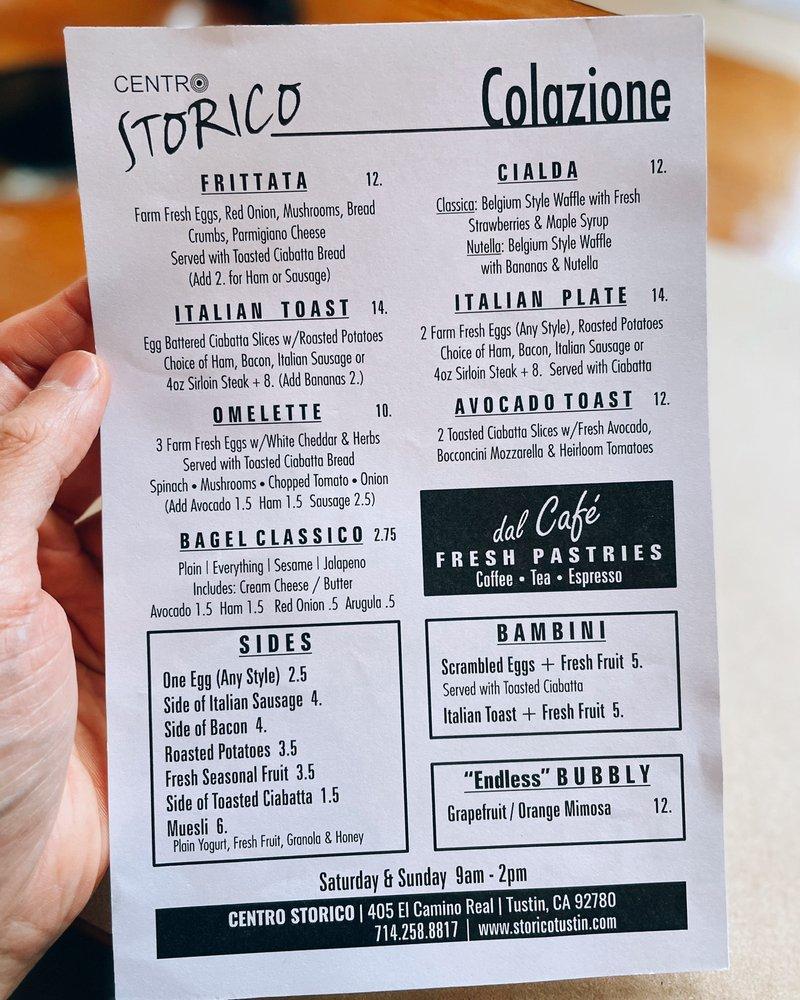 CENTRO
STORICO
Colazione
FRITTATA 12.
Farm Fresh Eggs, Red Onion, Mushrooms, Bread
Crumbs, Parmigiano Cheese
Served with Toasted Ciabatta Bread
(Add 2. for Ham or Sausage)
ITALIAN TOAST 14.
Egg Battered Ciabatta Slices w/Roasted Potatoes
Choice of Ham, Bacon, Italian Sausage or
4oz Sirloin Steak + 8. (Add Bananas 2.)
OMELETTE 10.
3 Farm Fresh Eggs w/White Cheddar & Herbs
Served with Toasted Ciabatta Bread
Spinach • Mushrooms • Chopped Tomato • Onion
(Add Avocado 1.5 Ham 1.5 Sausage 2.5)
BAGEL CLASSICO 2.75
Plain | Everything | Sesame | Jalapeno
Includes: Cream Cheese / Butter
Avocado 1.5 Ham 1.5 Red Onion .5 Arugula .5
SIDES
One Egg (Any Style) 2.5
Side of Italian Sausage 4.
Side of Bacon 4.
Roasted Potatoes 3.5
Fresh Seasonal Fruit 3.5
Side of Toasted Ciabatta 1.5
Muesli 6.
Plain Yogurt, Fresh Fruit, Granola & Honey
CIALDA 12.
Classica: Belgium Style Waffle with Fresh
Strawberries & Maple Syrup
Nutella: Belgium Style Waffle
with Bananas & Nutella
ITALIAN PLATE 14.
2 Farm Fresh Eggs (Any Style), Roasted Potatoes
Choice of Ham, Bacon, Italian Sausage or
4oz Sirloin Steak + 8. Served with Ciabatta
AVOCADO TOAST 12.
2 Toasted Ciabatta Slices w/Fresh Avocado,
Bocconcini Mozzarella & Heirloom Tomatoes
dal Café
FRESH PASTRIES
Coffee • Tea • Espresso
BAMBINI
Scrambled Eggs + Fresh Fruit 5.
Served with Toasted Ciabatta
Italian Toast + Fresh Fruit 5.
"Endless" BUBBLY
Grapefruit / Orange Mimosa 12.
Saturday & Sunday 9am - 2pm
CENTRO STORICO | 405 El Camino Real | Tustin, CA 92780
714.258.8817 | www.storicotustin.com